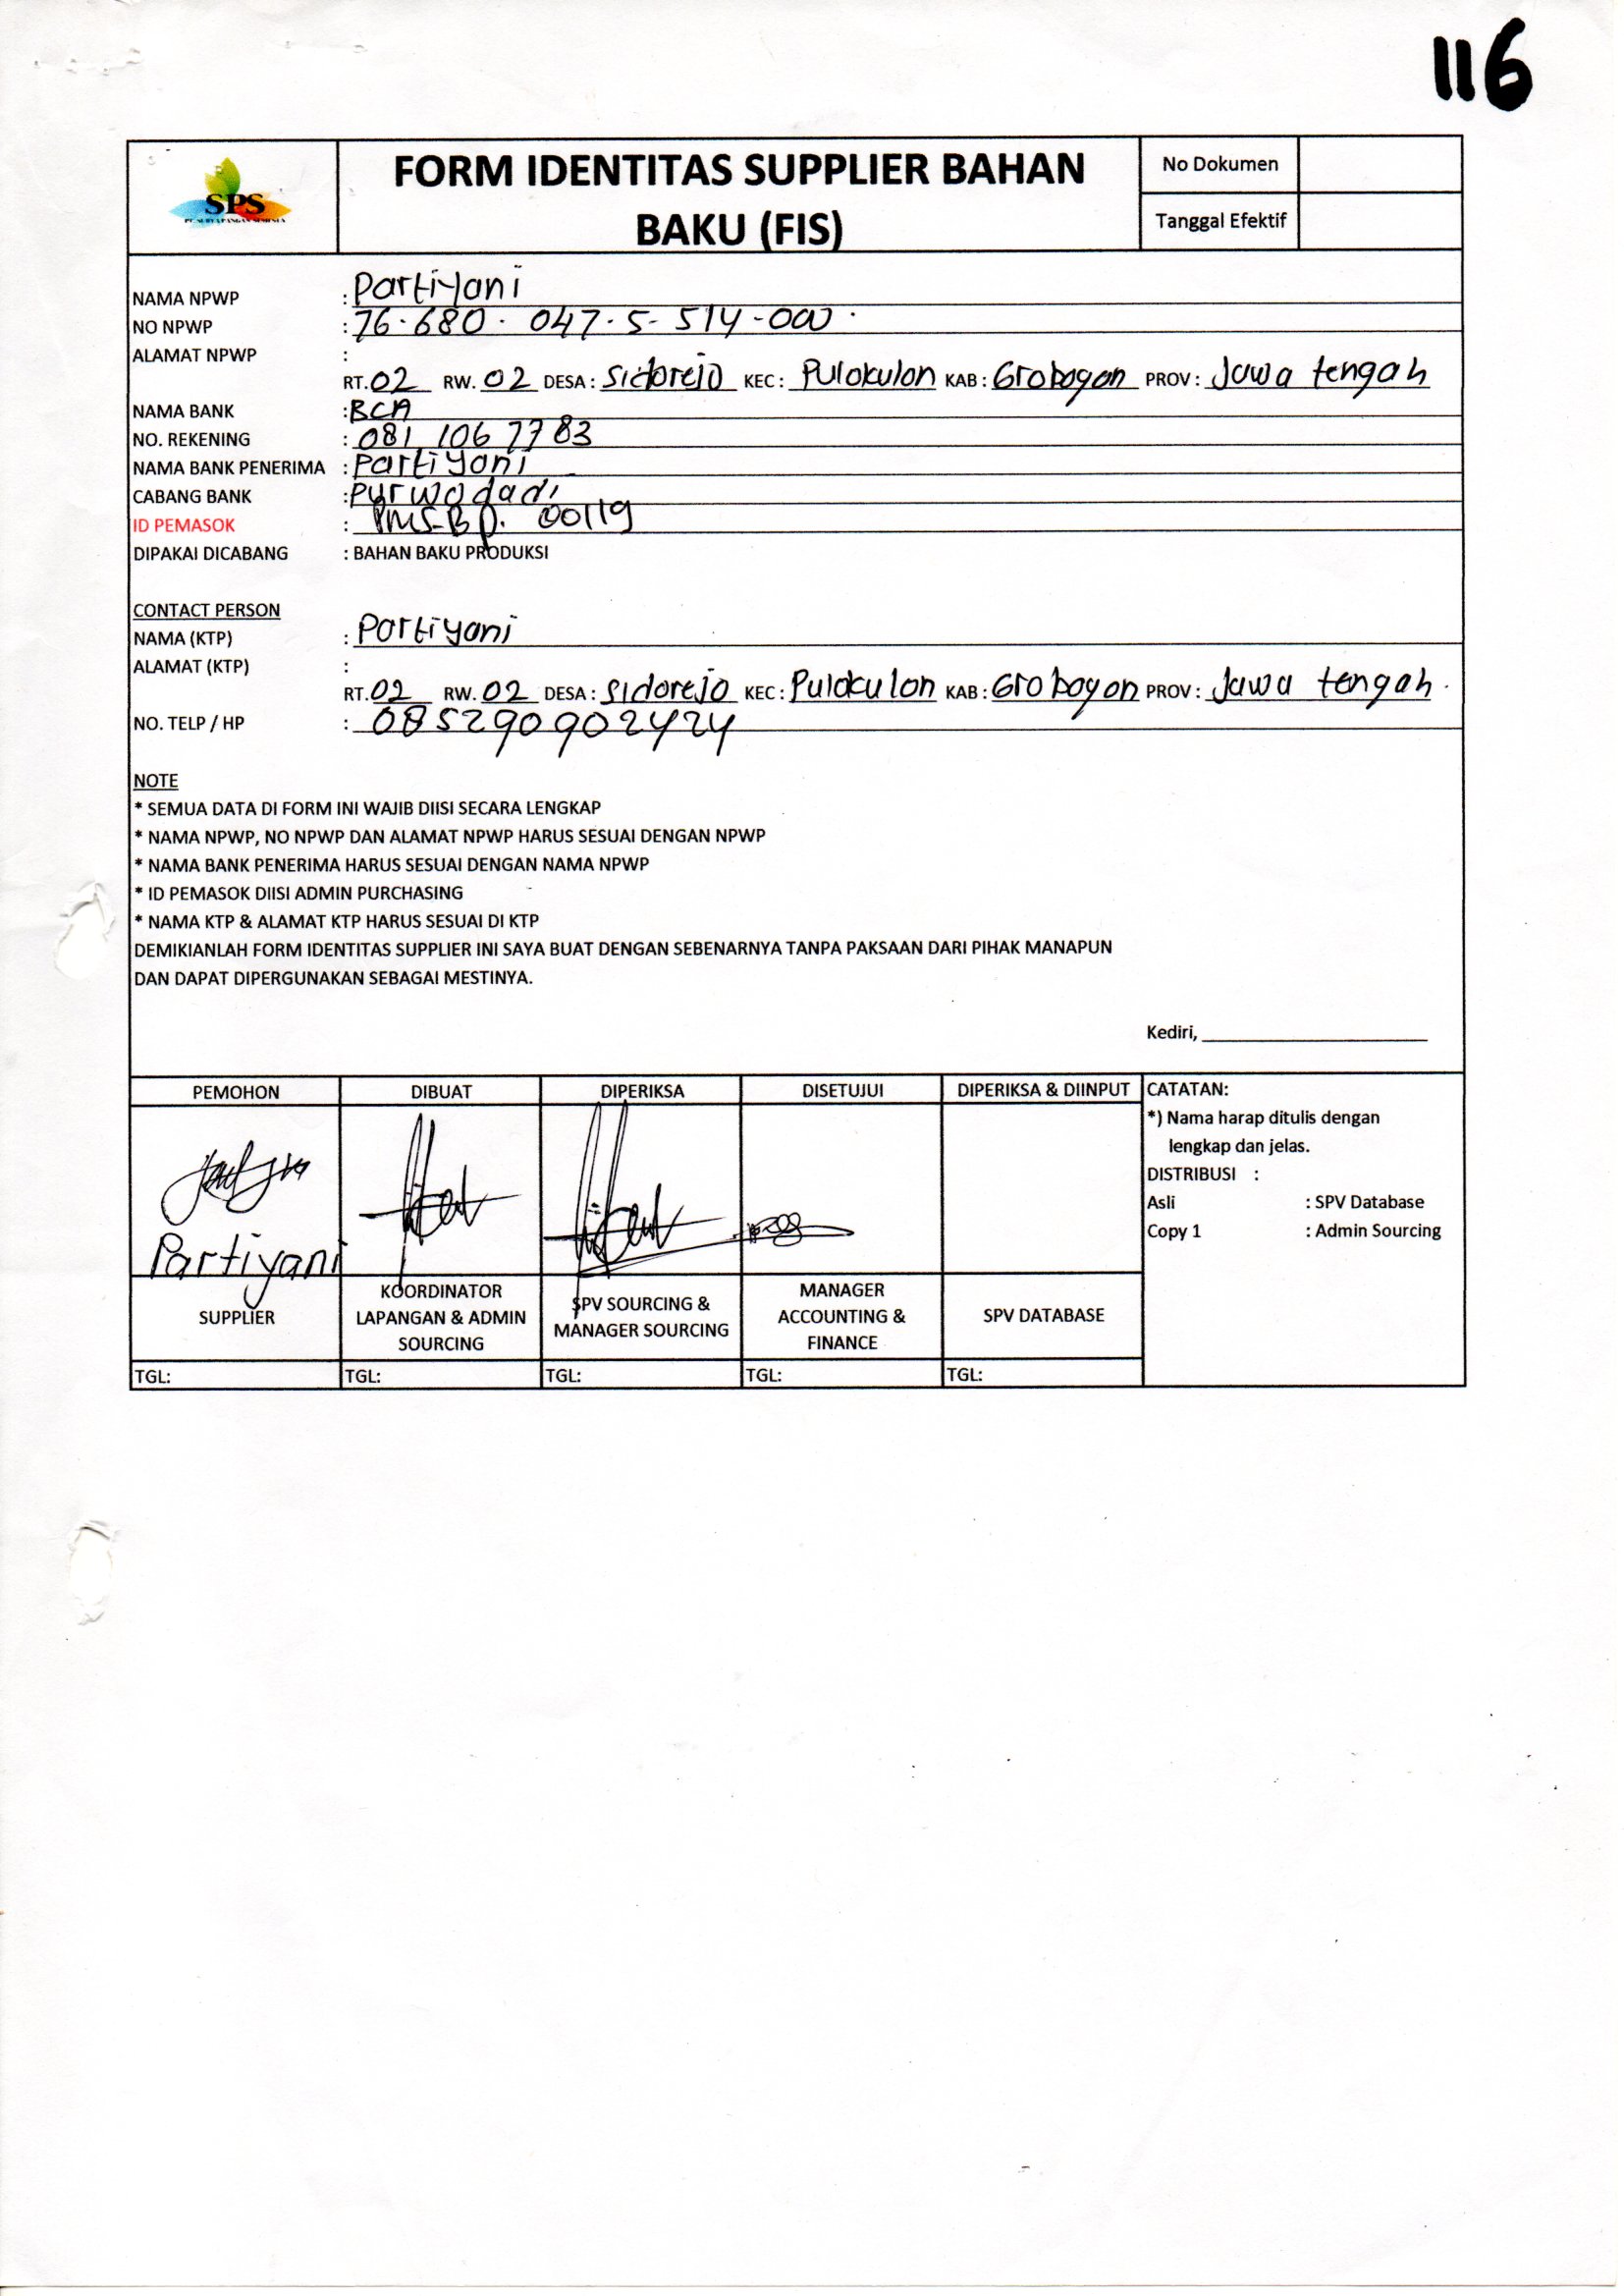 116
SPS
FORM IDENTITAS SUPPLIER BAHAN
BAKU (FIS)
No Dokumen
Tanggal Efektif
NAMA NPWP : Partiyani
NO NPWP : 76.680.047.5-514-000.
ALAMAT NPWP :
RT. 02 RW. 02 DESA : Sidorejo KEC : Pulokulon KAB : Grobogan PROV : Jawa tengah
NAMA BANK : BCA
NO. REKENING : 081 106 7783
NAMA BANK PENERIMA : Partiyani
CABANG BANK : Purwodadi
ID PEMASOK : PMS-Bp. 00119
DIPAKAI DICABANG : BAHAN BAKU PRODUKSI
CONTACT PERSON
NAMA (KTP) : Partiyani
ALAMAT (KTP) :
RT. 02 RW. 02 DESA : Sidorejo KEC : Pulokulon KAB : Grobogan PROV : Jawa tengah.
NO. TELP / HP : 085290902424
NOTE
* SEMUA DATA DI FORM INI WAJIB DIISI SECARA LENGKAP
* NAMA NPWP, NO NPWP DAN ALAMAT NPWP HARUS SESUAI DENGAN NPWP
* NAMA BANK PENERIMA HARUS SESUAI DENGAN NAMA NPWP
* ID PEMASOK DIISI ADMIN PURCHASING
* NAMA KTP & ALAMAT KTP HARUS SESUAI DI KTP
DEMIKIANLAH FORM IDENTITAS SUPPLIER INI SAYA BUAT DENGAN SEBENARNYA TANPA PAKSAAN DARI PIHAK MANAPUN
DAN DAPAT DIPERGUNAKAN SEBAGAI MESTINYA.
Kediri,
PEMOHON DIBUAT DIPERIKSA DISETUJUI DIPERIKSA & DIINPUT
Partiyani
SUPPLIER
KOORDINATOR
LAPANGAN & ADMIN
SOURCING
SPV SOURCING &
MANAGER SOURCING
MANAGER
ACCOUNTING &
FINANCE
SPV DATABASE
TGL: TGL: TGL: TGL: TGL:
CATATAN:
*) Nama harap ditulis dengan
lengkap dan jelas.
DISTRIBUSI :
Asli : SPV Database
Copy 1 : Admin Sourcing